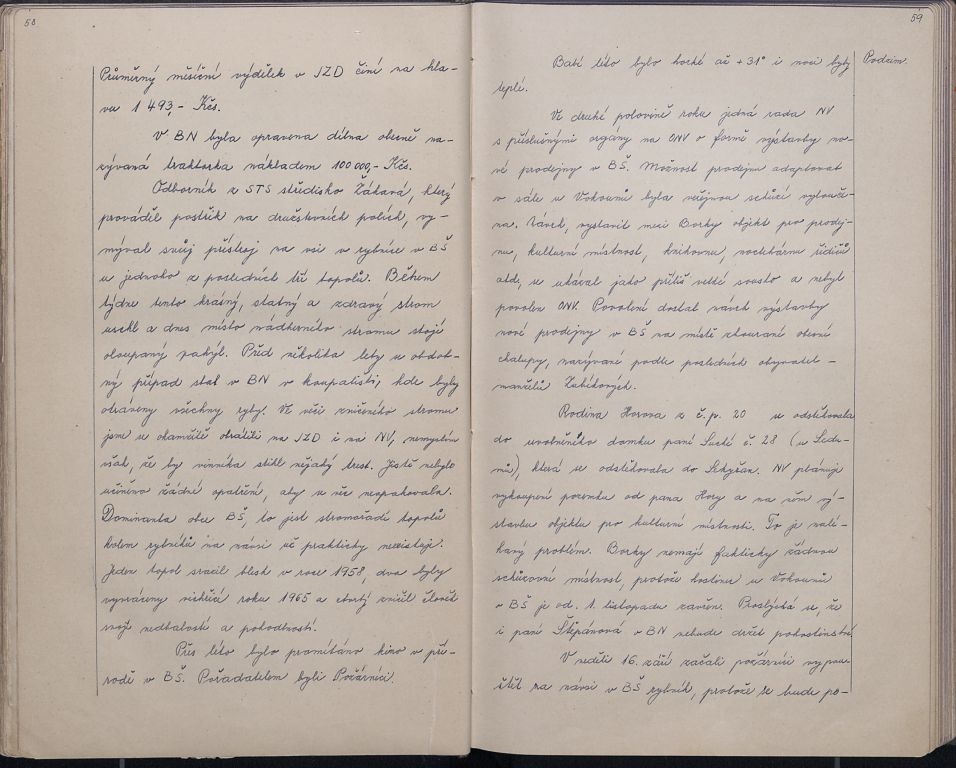 58
Průměrný měsíční výdělek v JZD činí na hla-
vu 1 493,- Kčs.
V BN byla opravena dílna obecně na-
zývaná traktorka nákladem 100 000,- Kčs.
Odborník z STS středisko Žákava, který
prováděl postřik na družstevních polích, vy-
mýval svůj přístroj na vsi v rybníce v BŠ
u jednoho z posledních tří topolů. Během
týdne tento krásný, statný a zdravý strom
uschl a dnes místo nádherného stromu stojí
oloupaný pahýl. Před několika lety se obdob-
ný případ stal v BN v koupališti, kde byly
otráveny všechny ryby. Ve věci zničeného stromu
jsme se okamžitě obrátili na JZD i na NV, nemyslím
však, že by viníka stihl nějaký trest. Jistě nebylo
učiněno žádné opatření, aby se věc neopakovala.
Dominanta obce BŠ, to jest stromořadí topolů
kolem rybníků na návsi už prakticky neexistuje.
Jeden topol srazil blesk v roce 1958, dva byly
vyvráceny vichřicí roku 1965 a čtvrtý zničil člověk
svojí nedbalostí a pohodlností.
Přes léto bylo promítáno kino v pří-
rodě v BŠ. Pořadatelem byli Požárníci.
59
Babí léto bylo horké až +31° i noci byly
teplé.
Podzim.
Ve druhé polovině roku jedná rada NV
s příslušnými orgány na ONV o formě výstavby no-
vé prodejny v BŠ. Možnost prodejnu adaptovat
v sále u Vokounů byla veřejnou schůzí vylouče-
na. Návrh, vystavit mezi Borky objekt pro prodej-
nu, kulturní místnost, knihovnu,
atd, se ukázal jako příliš velké sousto a nebyl
povolen ONV. Povolení dostal návrh výstavby
nové prodejny v BŠ na místě zbourané obecní
chalupy, nazývané podle posledních obyvatel -
manželů Zubíkových.
Rodina Horova z č.p. 20 se odstěhovala
do uvolněného domku paní Suché č. 28 (u Sedu-
nů), která se odstěhovala do Sekyřan. NV plánuje
vykoupení pozemku od pana Hory a na něm vý-
stavbu objektu pro kulturní místnosti. To je nalé-
havý problém. Borky nemají fakticky žádnou
schůzovní místnost, protože hostinec u Vokounů
v BŠ je od 1. listopadu zavřen. Proslýchá se, že
i paní Štěpánová v BN nebude držet pohostinství.
V neděli 16. září začali požárníci vypou-
štět na návsi v BŠ rybník, protože se bude po-